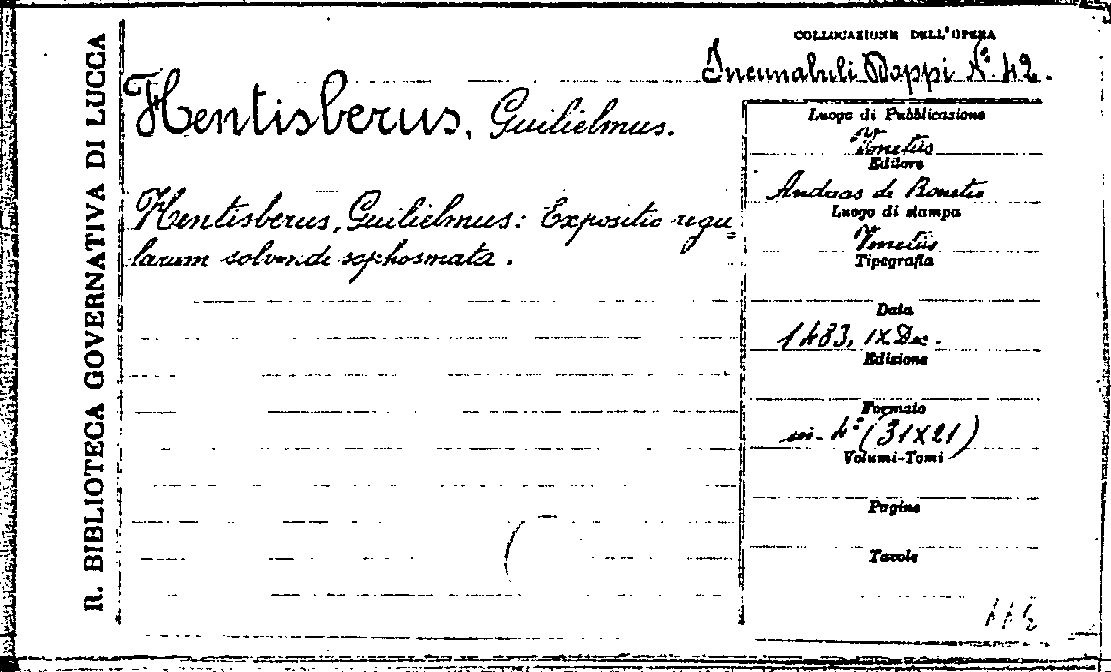 R. BIBLIOTECA GOVERNATIVA DI LUCCA
COLLOCAZIONE DELL'OPERA
Incunabuli Doppi N.º 42.
Hentisberus, Guilielmus.
Hentisberus, Guilielmus: Expositio regu=
larum solvende sophosmata.
Luogo di Pubblicazione
Venetiis
Editore
Andreas de Bonetis
Luogo di stampa
Venetiis
Tipografia
Data
1483, IX Dec.
Edizione
Formato
in-4º (31X21)
Volumi-Tomi
Pagine
Tavole